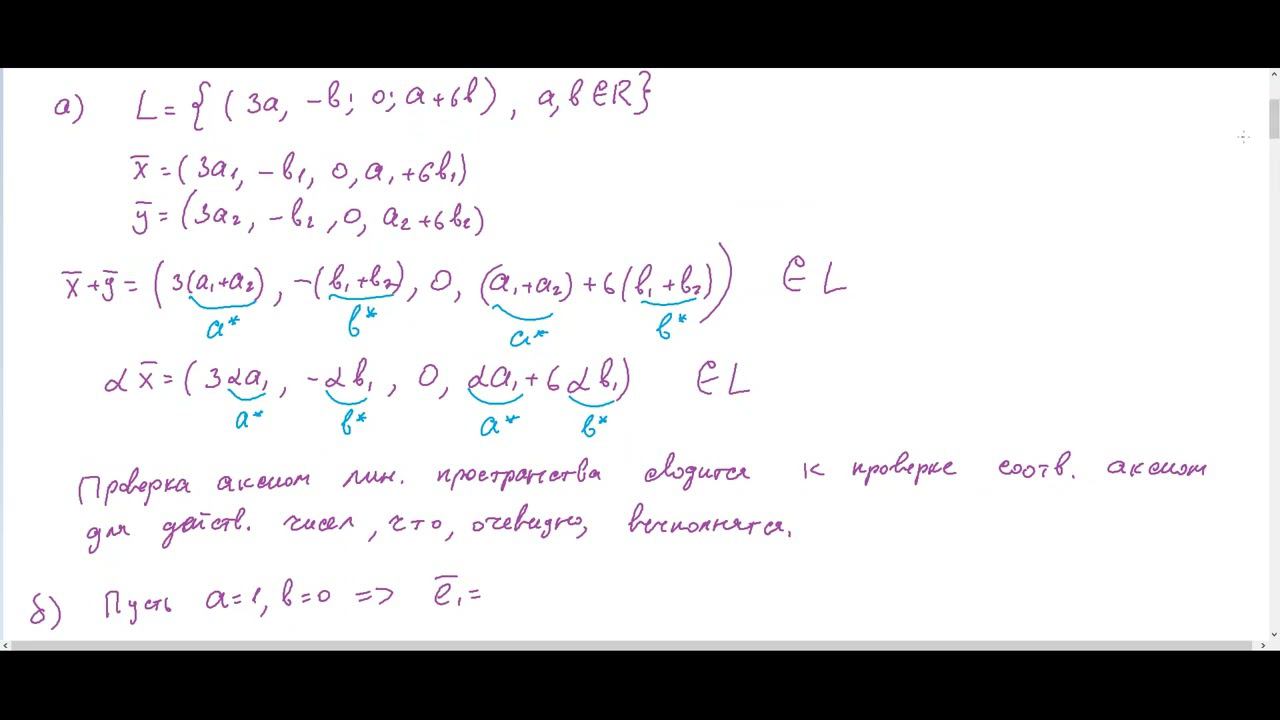 а) L = { (3a, -b; 0; a+6b), a, b ∈ R}
x̅ = (3a₁, -b₁, 0, a₁+6b₁)
y̅ = (3a₂, -b₂, 0, a₂+6b₂)
x̅+y̅ = (3(a₁+a₂), -(b₁+b₂), 0, (a₁+a₂)+6(b₁+b₂)) ∈ L
a* b* a* b*
αx̅ = (3αa₁, -αb₁, 0, αa₁+6αb₁) ∈ L
a* b* a* b*
Проверка аксиом лин. пространства сводится к проверке соотв. аксиом
для действ. чисел, что, очевидно, выполнятся.
б) Пусть a=1, b=0 => e̅₁=